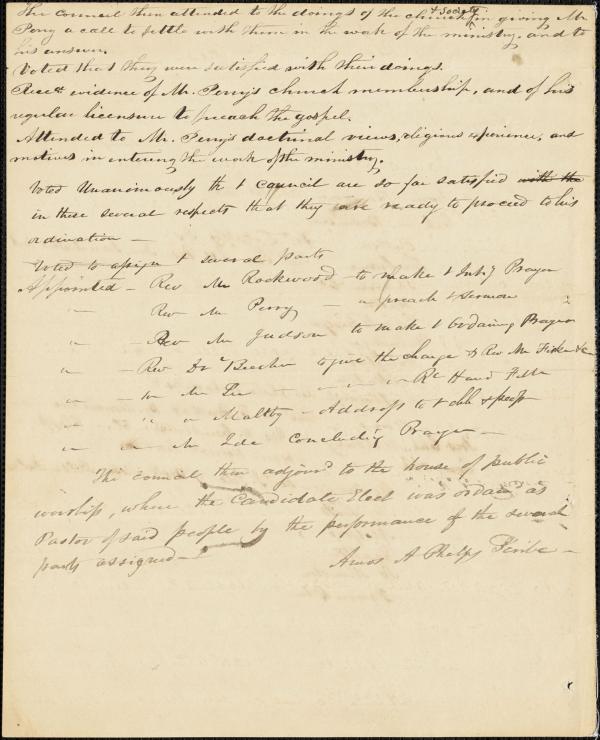 The council then attended to the doings of the church & Society in giving Mr.
Perry a call to settle with them in the work of the ministry, and to
his answer.
Voted that they were satisfied with their doings.
Recd evidence of Mr. Perry's church membership, and of his
regular licensure to preach the gospel.
Attended to Mr. Perry's doctrinal views, religious experience, and
motives in entering the work of the ministry.
Voted Unanimously th t council are so far satisfied with the
in these several respects that they are ready to proceed to his
ordination —
Voted to assign t several parts
Appointed — Rev Mr Rockwood — to make t Inty Prayer
" — Rev Mr Perry — " preach t Sermon "
" — Rev Mr Judson to make t Ordaing Prayer
" — Rev Dr Beecher to give the charge & Rev Mr
" — " Mr — " — " — " Rt Hand Fell
" — " " Maltby — Address to t chh & peop
" — " Mr Ide Concluding Prayer —
The council then adjournd to the house of public
worship, where the Candidate Elect was ordaind as
Pastor of said people by the performance of the several
parts assigned —
Amos A Phelps Scribe —